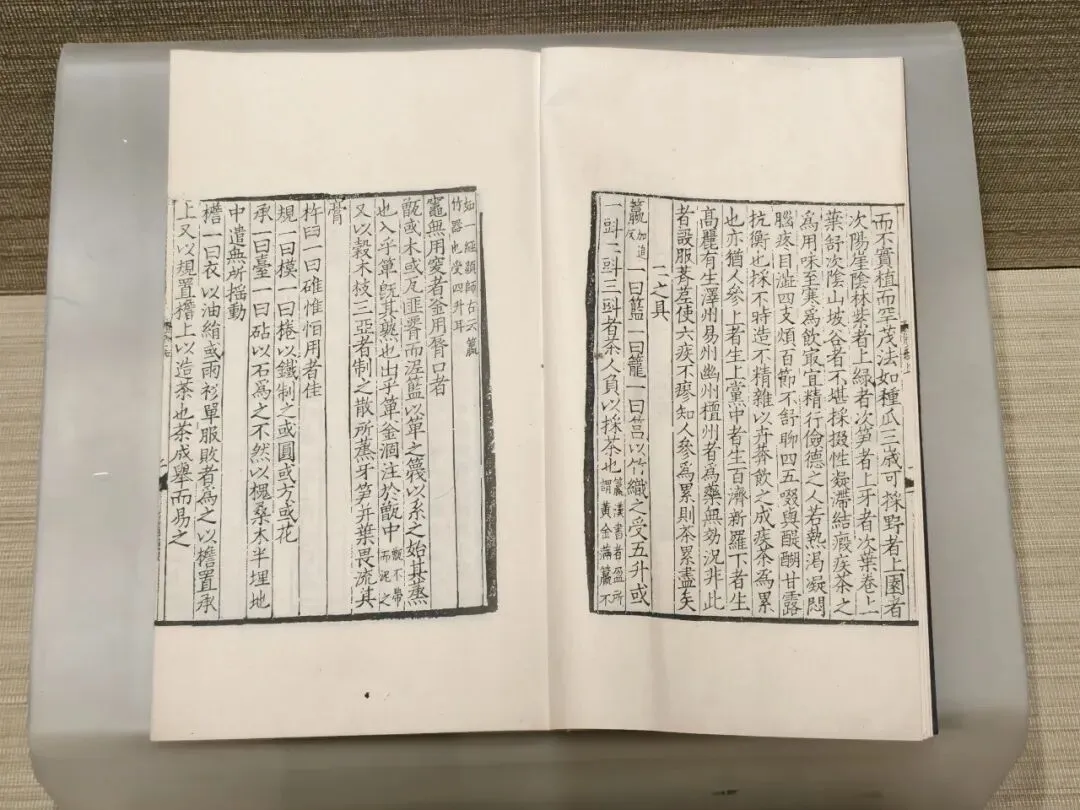 而不實植而罕茂法如種瓜三歲可採野者上園者
次陽崖陰林紫者上綠者次笋者上牙者次葉卷上
葉舒次陰山坡谷者不堪採掇性凝滯結瘕疾茶之
爲用味至寒爲飲最宜精行儉德之人若熱渴凝悶
腦疼目澁四支煩百節不舒聊四五啜與醍醐甘露
抗衡也採不時造不精雜以卉莽飲之成疾茶爲累
也亦猶人參上者生上黨中者生百濟新羅下者生
高麗有生澤州易州幽州檀州者爲藥無効況非此
者設服薺苨使六疾不瘳知人參爲累則茶累盡矣
二之具
籯加追反一曰籃一曰籠一曰筥以竹織之受五升或
一㪷二㪷三㪷者茶人負以採茶也籯漢書音盈所謂黃金滿籯不
如一經顔師古云籯竹器也受四升耳
竈無用突者釜用脣口者
甑或木或瓦匪腰而泥籃以箄之篾以系之始其蒸
也入乎箄既其熟也出乎箄釜涸注於甑中甑不帶而泥之
又以榖木枝三亞者制之散所蒸牙笋并葉畏流其
膏
杵臼一曰碓惟恒用者佳
規一曰模一曰棬以鐵制之或圓或方或花
承一曰臺一曰砧以石爲之不然以槐桑木半埋地
中遣無所搖動
檐一曰衣以油絹或雨衫單服敗者爲之以檐置承
上又以規置檐上以造茶也茶成舉而易之